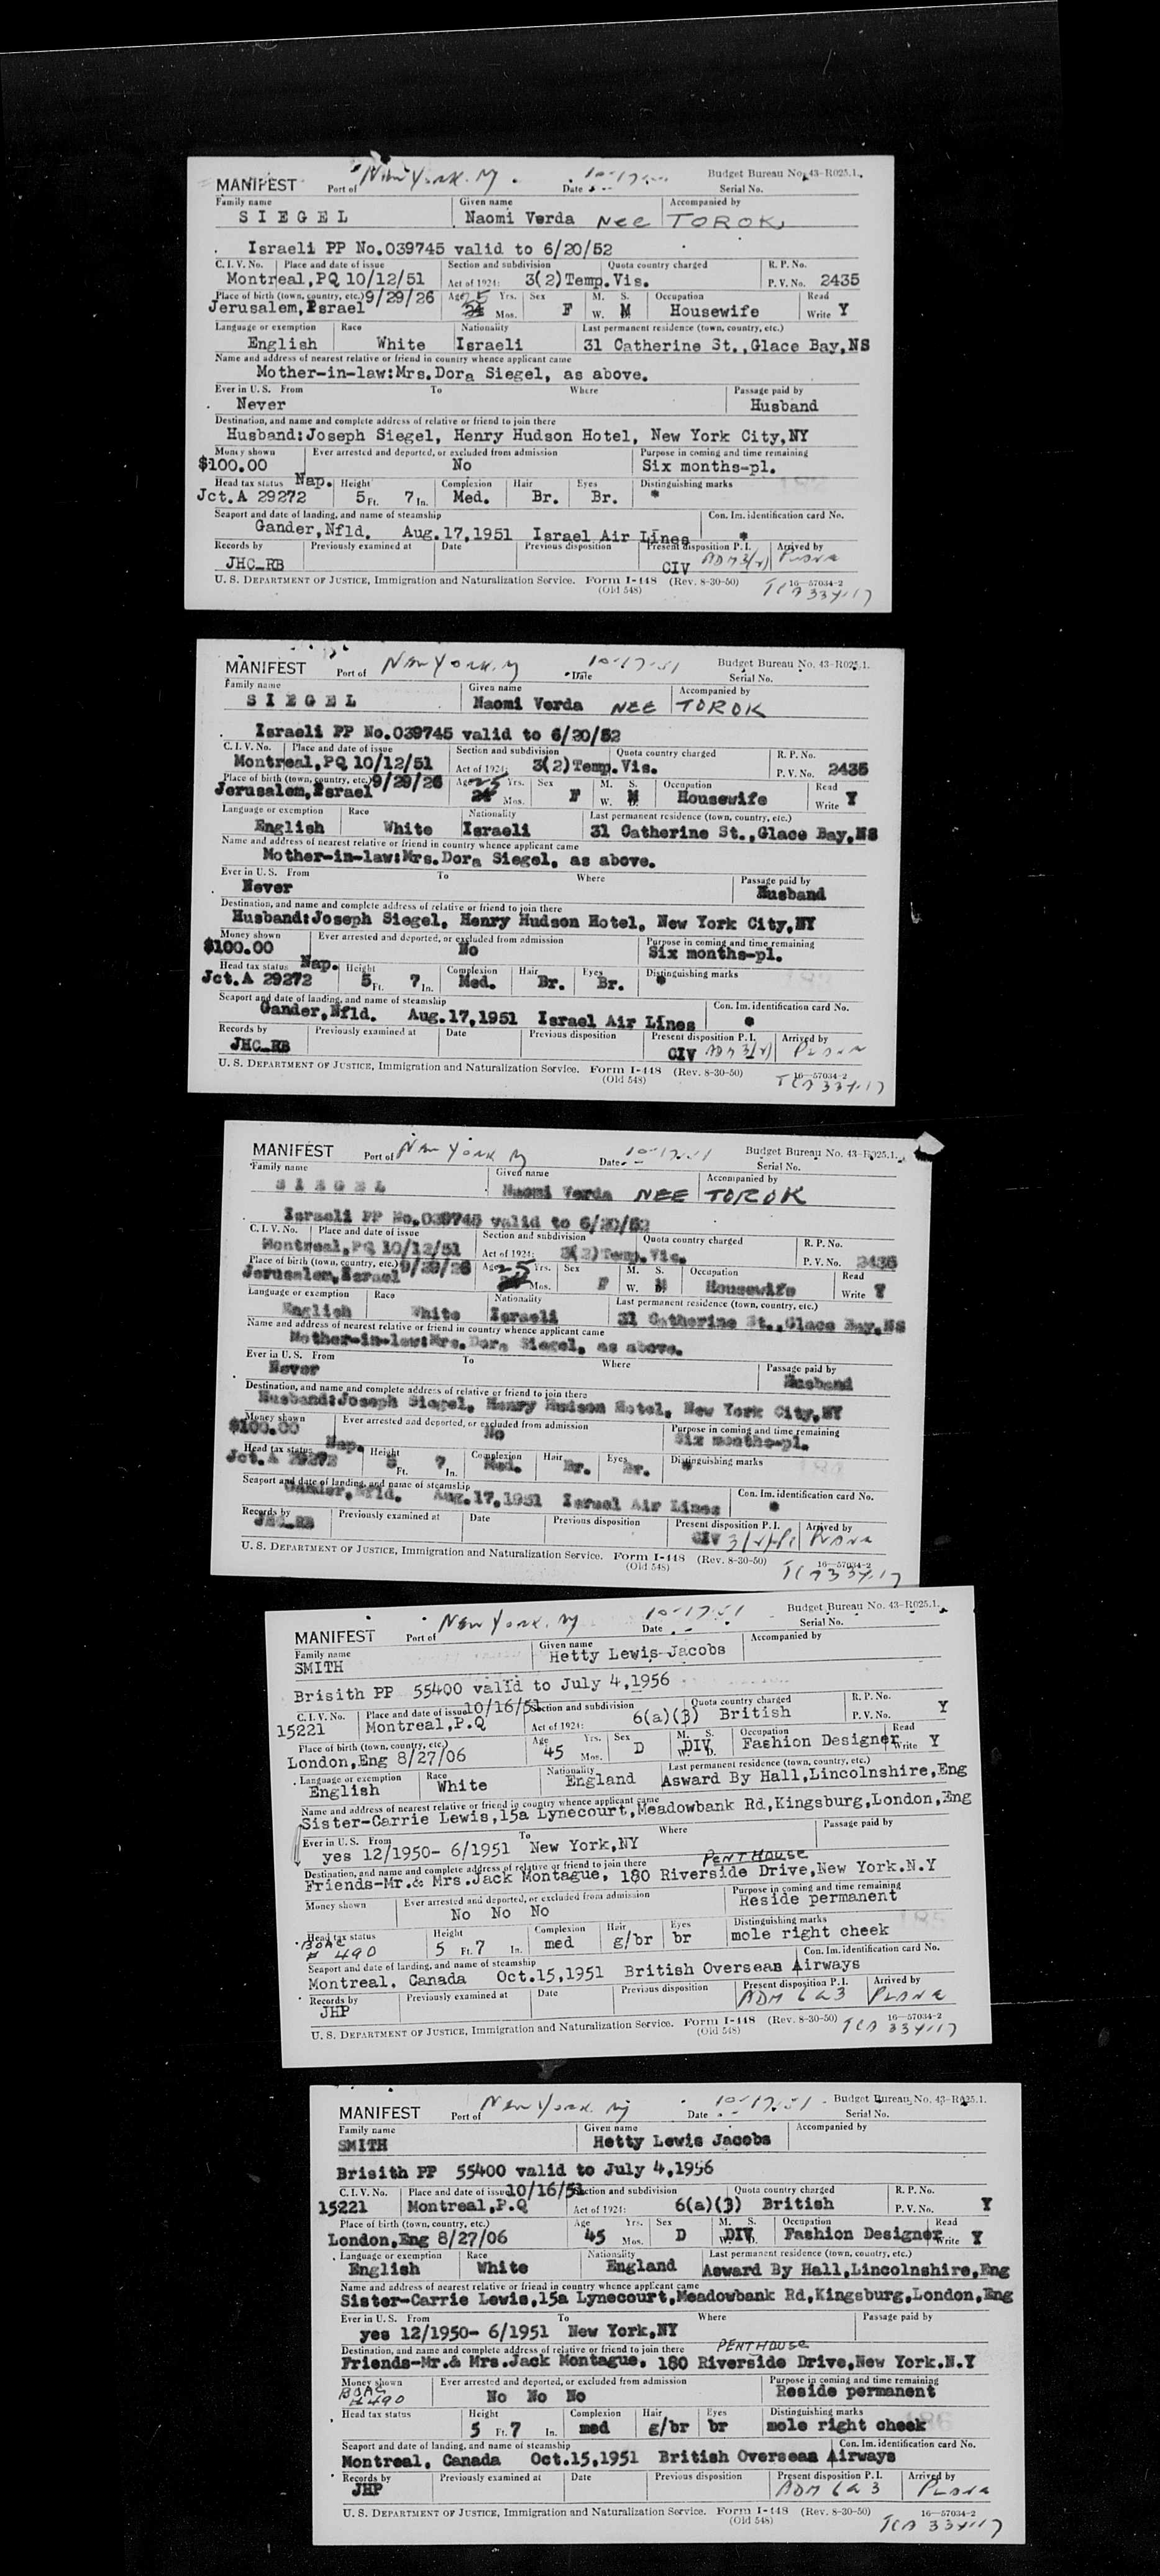 MANIFEST Port of New York, NY Date 10-17- Budget Bureau No. 43-R025.1.
Serial No.
Family name Given name Accompanied by
SIEGEL Naomi Verda NEE TOROK
Israeli PP No.039745 valid to 6/20/52
C. I. V. No. Place and date of issue Section and subdivision Quota country charged R. P. No.
Montreal,PQ 10/12/51 Act of 1924: 3(2)Temp.Vis. P. V. No. 2435
Place of birth (town, country, etc.) 9/29/26 Age 25 Yrs. Sex M. S. Occupation Read
Jerusalem, Israel Mos. F W. M Housewife Write Y
Language or exemption Race Nationality Last permanent residence (town, country, etc.)
English White Israeli 31 Catherine St.,Glace Bay,NS
Name and address of nearest relative or friend in country whence applicant came
Mother-in-law:Mrs.Dora Siegel, as above.
Ever in U. S. From To Where Passage paid by
Never Husband
Destination, and name and complete address of relative or friend to join there
Husband:Joseph Siegel, Henry Hudson Hotel, New York City,NY
Money shown Ever arrested and deported, or excluded from admission Purpose in coming and time remaining
$100.00 No Six months-pl.
Head tax status Nap. Height Complexion Hair Eyes Distinguishing marks
Jct.A 29272 5 Ft. 7 In. Med. Br. Br. *
Seaport and date of landing, and name of steamship Con. Im. identification card No.
Gander,Nfld. Aug.17,1951 Israel Air Lines *
Records by Previously examined at Date Previous disposition Present disposition P. I. Arrived by
JHC_RB CIV ADM 3(2) Plane
U. S. DEPARTMENT OF JUSTICE, Immigration and Naturalization Service. Form I-448 (Rev. 8-30-50) 16—57034-2
(Old 548) TCA 334-17
MANIFEST Port of New York, NY Date 10-17-51 Budget Bureau No. 43-R025.1.
Serial No.
Family name Given name Accompanied by
SIEGEL Naomi Verda NEE TOROK
Israeli PP No.039745 valid to 6/20/52
C. I. V. No. Place and date of issue Section and subdivision Quota country charged R. P. No.
Montreal,PQ 10/12/51 Act of 1924: 3(2)Temp.Vis. P. V. No. 2435
Place of birth (town, country, etc.) 9/29/26 Age 25 Yrs. Sex M. S. Occupation Read
Jerusalem, Israel Mos. F W. M Housewife Write Y
Language or exemption Race Nationality Last permanent residence (town, country, etc.)
English White Israeli 31 Catherine St.,Glace Bay,NS
Name and address of nearest relative or friend in country whence applicant came
Mother-in-law:Mrs.Dora Siegel, as above.
Ever in U. S. From To Where Passage paid by
Never Husband
Destination, and name and complete address of relative or friend to join there
Husband:Joseph Siegel, Henry Hudson Hotel, New York City,NY
Money shown Ever arrested and deported, or excluded from admission Purpose in coming and time remaining
$100.00 No Six months-pl.
Head tax status Nap. Height Complexion Hair Eyes Distinguishing marks
Jct.A 29272 5 Ft. 7 In. Med. Br. Br. *
Seaport and date of landing, and name of steamship Con. Im. identification card No.
Gander,Nfld. Aug.17,1951 Israel Air Lines *
Records by Previously examined at Date Previous disposition Present disposition P. I. Arrived by
JHC_RB CIV ADM 3(2) Plane
U. S. DEPARTMENT OF JUSTICE, Immigration and Naturalization Service. Form I-448 (Rev. 8-30-50) 16—57034-2
(Old 548) TCA 334-17
MANIFEST Port of New York NY Date 10-17-51 Budget Bureau No. 43-R025.1.
Serial No.
Family name Given name Accompanied by
SIEGEL Naomi Verda NEE TOROK
Israeli PP No.039745 valid to 6/20/52
C. I. V. No. Place and date of issue Section and subdivision Quota country charged R. P. No.
Montreal,PQ 10/12/51 Act of 1924: 3(2)Temp.Vis. P. V. No. 2435
Place of birth (town, country, etc.) 9/29/26 Age 25 Yrs. Sex M. S. Occupation Read
Jerusalem, Israel Mos. F W. M Housewife Write Y
Language or exemption Race Nationality Last permanent residence (town, country, etc.)
English White Israeli 31 Catherine St.,Glace Bay,NS
Name and address of nearest relative or friend in country whence applicant came
Mother-in-law:Mrs.Dora Siegel, as above.
Ever in U. S. From To Where Passage paid by
Never Husband
Destination, and name and complete address of relative or friend to join there
Husband:Joseph Siegel, Henry Hudson Hotel, New York City,NY
Money shown Ever arrested and deported, or excluded from admission Purpose in coming and time remaining
$100.00 No Six months-pl.
Head tax status Nap. Height Complexion Hair Eyes Distinguishing marks
Jct.A 29272 5 Ft. 7 In. Med. Br. Br. *
Seaport and date of landing, and name of steamship Con. Im. identification card No.
Gander,Nfld. Aug.17,1951 Israel Air Lines *
Records by Previously examined at Date Previous disposition Present disposition P. I. Arrived by
JHC_RB CIV Plane
U. S. DEPARTMENT OF JUSTICE, Immigration and Naturalization Service. Form I-448 (Rev. 8-30-50) 16—57034-2
(Old 548) TCA 334-17
MANIFEST Port of New York, NY Date 10-17-51 Budget Bureau No. 43-R025.1.
Serial No.
Family name Given name Accompanied by
SMITH Hetty Lewis Jacobs
Brisith PP 55400 valid to July 4,1956
C. I. V. No. Place and date of issue 10/16/51 Section and subdivision Quota country charged R. P. No.
15221 Montreal,P.Q Act of 1924: 6(a)(3) British P. V. No. Y
Place of birth (town, country, etc.) Age Yrs. Sex M. S. Occupation Read
London,Eng 8/27/06 45 Mos. D W. DIV. D. Fashion Designer Write Y
Language or exemption Race Nationality Last permanent residence (town, country, etc.)
English White England Asward By Hall,Lincolnshire,Eng
Name and address of nearest relative or friend in country whence applicant came
Sister-Carrie Lewis,15a Lynecourt,Meadowbank Rd,Kingsburg,London,Eng
Ever in U. S. From To Where Passage paid by
yes 12/1950- 6/1951 New York,NY
Destination, and name and complete address of relative or friend to join there PENTHOUSE
Friends-Mr.& Mrs.Jack Montague, 180 Riverside Drive,New York.N.Y
Money shown Ever arrested and deported, or excluded from admission Purpose in coming and time remaining
No No No Reside permanent
Head tax status Height Complexion Hair Eyes Distinguishing marks
BOAC # 490 5 Ft. 7 In. med g/br br mole right cheek
Seaport and date of landing, and name of steamship Con. Im. identification card No.
Montreal. Canada Oct.15,1951 British Overseas Airways
Records by Previously examined at Date Previous disposition Present disposition P. I. Arrived by
JHP ADM 6 a 3 Plane
U. S. DEPARTMENT OF JUSTICE, Immigration and Naturalization Service. Form I-448 (Rev. 8-30-50) 16—57034-2
(Old 548) TCA 334-17
MANIFEST Port of New York NY Date 10-17-51 Budget Bureau No. 43-R025.1.
Serial No.
Family name Given name Accompanied by
SMITH Hetty Lewis Jacobs
Brisith PP 55400 valid to July 4,1956
C. I. V. No. Place and date of issue 10/16/51 Section and subdivision Quota country charged R. P. No.
15221 Montreal,P.Q Act of 1924: 6(a)(3) British P. V. No. Y
Place of birth (town, country, etc.) Age Yrs. Sex M. S. Occupation Read
London,Eng 8/27/06 45 Mos. D W. DIV. D. Fashion Designer Write Y
Language or exemption Race Nationality Last permanent residence (town, country, etc.)
English White England Asward By Hall,Lincolnshire,Eng
Name and address of nearest relative or friend in country whence applicant came
Sister-Carrie Lewis,15a Lynecourt,Meadowbank Rd,Kingsburg,London,Eng
Ever in U. S. From To Where Passage paid by
yes 12/1950- 6/1951 New York,NY
Destination, and name and complete address of relative or friend to join there PENTHOUSE
Friends-Mr.& Mrs.Jack Montague, 180 Riverside Drive,New York.N.Y
Money shown Ever arrested and deported, or excluded from admission Purpose in coming and time remaining
BOAC #490 No No No Reside permanent
Head tax status Height Complexion Hair Eyes Distinguishing marks
5 Ft. 7 In. med g/br br mole right cheek
Seaport and date of landing, and name of steamship Con. Im. identification card No.
Montreal, Canada Oct.15,1951 British Overseas Airways
Records by Previously examined at Date Previous disposition Present disposition P. I. Arrived by
JHP ADM 6 a 3 Plane
U. S. DEPARTMENT OF JUSTICE, Immigration and Naturalization Service. Form I-448 (Rev. 8-30-50) 16—57034-2
(Old 548) TCA 334-17